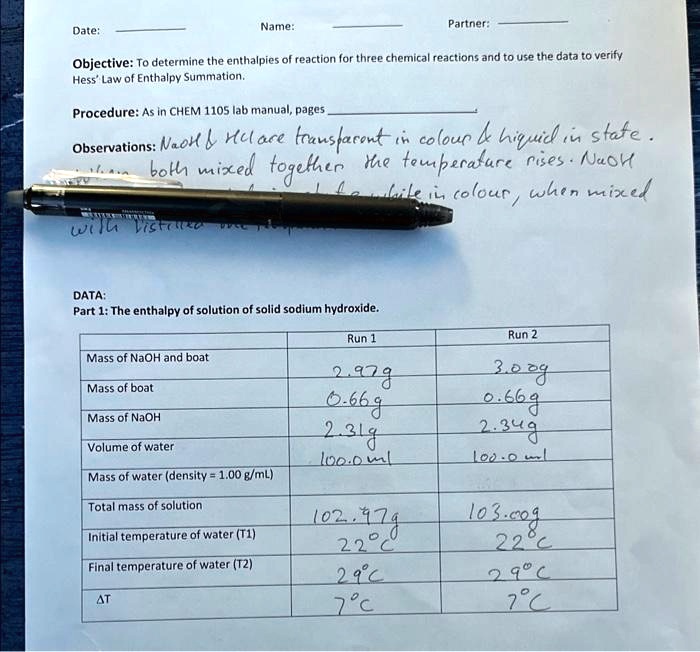 Date: Name: Partner:
Objective: To determine the enthalpies of reaction for three chemical reactions and to use the data to verify
Hess' Law of Enthalpy Summation.
Procedure: As in CHEM 1105 lab manual, pages
Observations: NaOH & HCl are transparent in colour & liquid in state.
both mixed together the temperature rises. NaOH
in colour, when mixed
with
DATA:
Part 1: The enthalpy of solution of solid sodium hydroxide.
Run 1 Run 2
Mass of NaOH and boat 2.97g 3.00g
Mass of boat 0.66g 0.66g
Mass of NaOH 2.31g 2.34g
Volume of water 100.0ml 100.0ml
Mass of water (density = 1.00 g/mL)
Total mass of solution 102.97g 103.00g
Initial temperature of water (T1) 22°C 22°C
Final temperature of water (T2) 29°C 29°C
ΔT 7°C 7°C